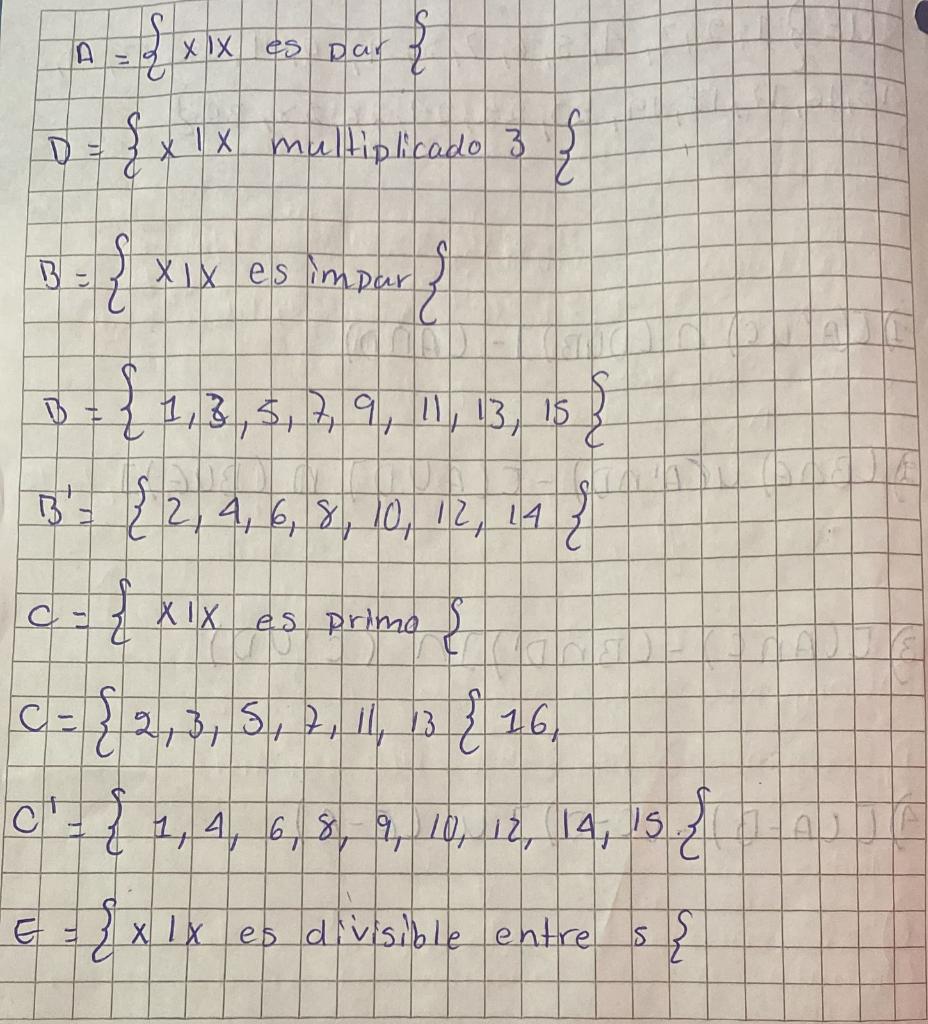 A = { x|x es par {
D = { x|x multiplicado 3 {
B = { x|x es impar {
B = { 1, 3, 5, 7, 9, 11, 13, 15 }
B' = { 2, 4, 6, 8, 10, 12, 14 }
C = { x|x es primo {
C = { 2, 3, 5, 7, 11, 13 { 16,
C' = { 1, 4, 6, 8, 9, 10, 12, 14, 15 {
E = { x|x es divisible entre 5 {